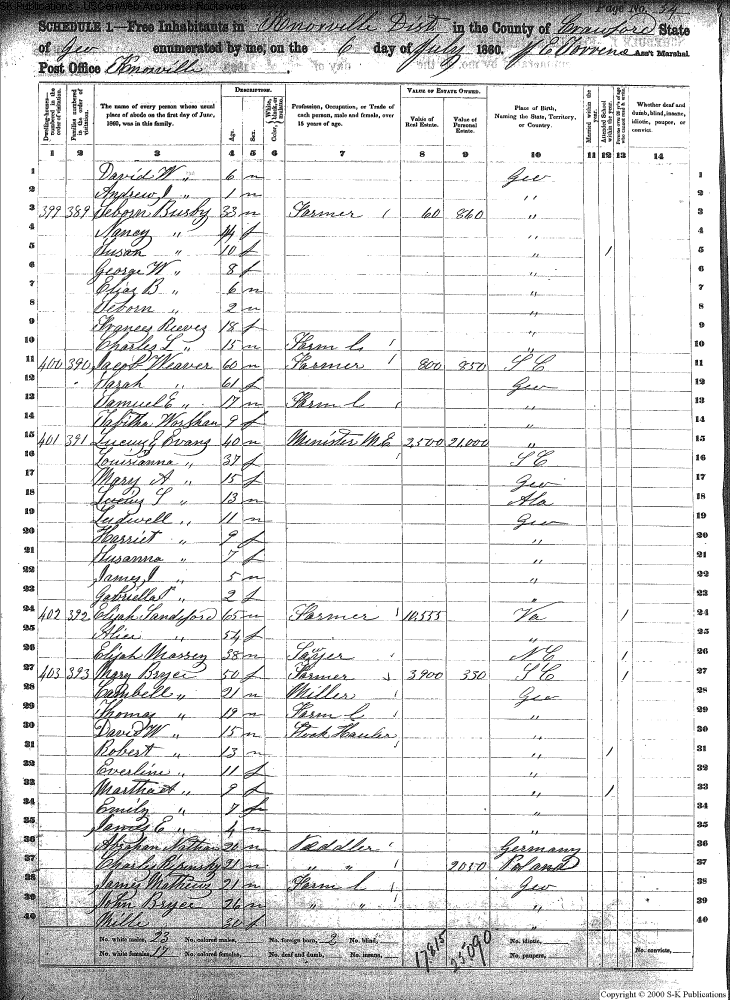 SK Publications - USGenWeb Archives - Rootsweb
Page No. 34
SCHEDULE 1.—Free Inhabitants in Knoxville Dist in the County of Crawford State
of Geo enumerated by me, on the 6 day of July 1860. Ass't Marshal
Post Office Knoxville.
DESCRIPTION. VALUE OF ESTATE OWNED.
Dwelling-houses—numbered in the order of visitation. Families numbered in the order of visitation. The name of every person whose usual place of abode on the first day of June, 1860, was in this family. Age. Sex. Color, {White, black, or mulatto. Profession, Occupation, or Trade of each person, male and female, over 15 years of age. Value of Real Estate. Value of Personal Estate. Place of Birth, Naming the State, Territory, or Country. Married within the year. Attended School within the year. Persons over 20 y'rs of age who cannot read & write. Whether deaf and dumb, blind, insane, idiotic, pauper, or convict.
1 2 3 4 5 6 7 8 9 10 11 12 13 14
1 David W " 6 m Geo 1
2 Andrew J " 1 m " 2
3 399 389 Seborn Busby 33 m Farmer / 60 860 " 3
4 Nancy " 44 f " 4
5 Susan " 10 f " / 5
6 George W " 8 f " 6
7 Elias B " 6 m " 7
8 Seborn " 2 m " 8
9 Frances Reeves 18 f " 9
10 Charles L " 15 m Farm L / " 10
11 400 390 Jacob Weaver 60 m Farmer / 800 850 S C 11
12 Sarah " 61 f Geo 12
13 Samuel E " 17 m Farm L / " 13
14 Tabitha Worsham 9 f " 14
15 401 391 Lucius G Evans 40 m Minister M.E 2,500 21,000 " 15
16 Louisianna " 37 f S C 16
17 Mary A " 15 f Geo 17
18 Lucius L " 13 m Ala 18
19 Ludwell " 11 m Geo 19
20 Harriet " 9 f " 20
21 Susanna " 7 f " 21
22 James J " 5 m " 22
23 Gabriella " 2 f " 23
24 402 392 Elijah Sandeford 65 m Farmer / 10,555 Va / 24
25 Alice " 54 f " 25
26 Elijah Massey 38 m / N C / 26
27 403 393 Mary Bryce 50 f Farmer 3900 330 S C / 27
28 Cambell " 21 m Miller / Geo 28
29 Thomas " 19 m Farm L / " 29
30 David W " 15 m Stock Hauler " 30
31 Robert " 13 m " / 31
32 Everline " 11 f " 32
33 Martha " 9 f " / 33
34 Emily " 7 f " 34
35 James E " 4 m " 35
36 Abraham Nathan 20 m Peddler / Germany 36
37 Charles 21 m " " / 2050 Poland 37
38 James Mathews 21 m Farm L / Geo 38
39 John Bryce 26 m " " / " 39
40 Mille 30 f " 40
No. white males, 23 No. colored males, No. foreign born, 2 No. blind, 17815 25090 No. idiotic,
No. white females, 17 No. colored females, No. deaf and dumb, No. insane, No. paupers, No. convicts,
Copyright © 2000 S-K Publications